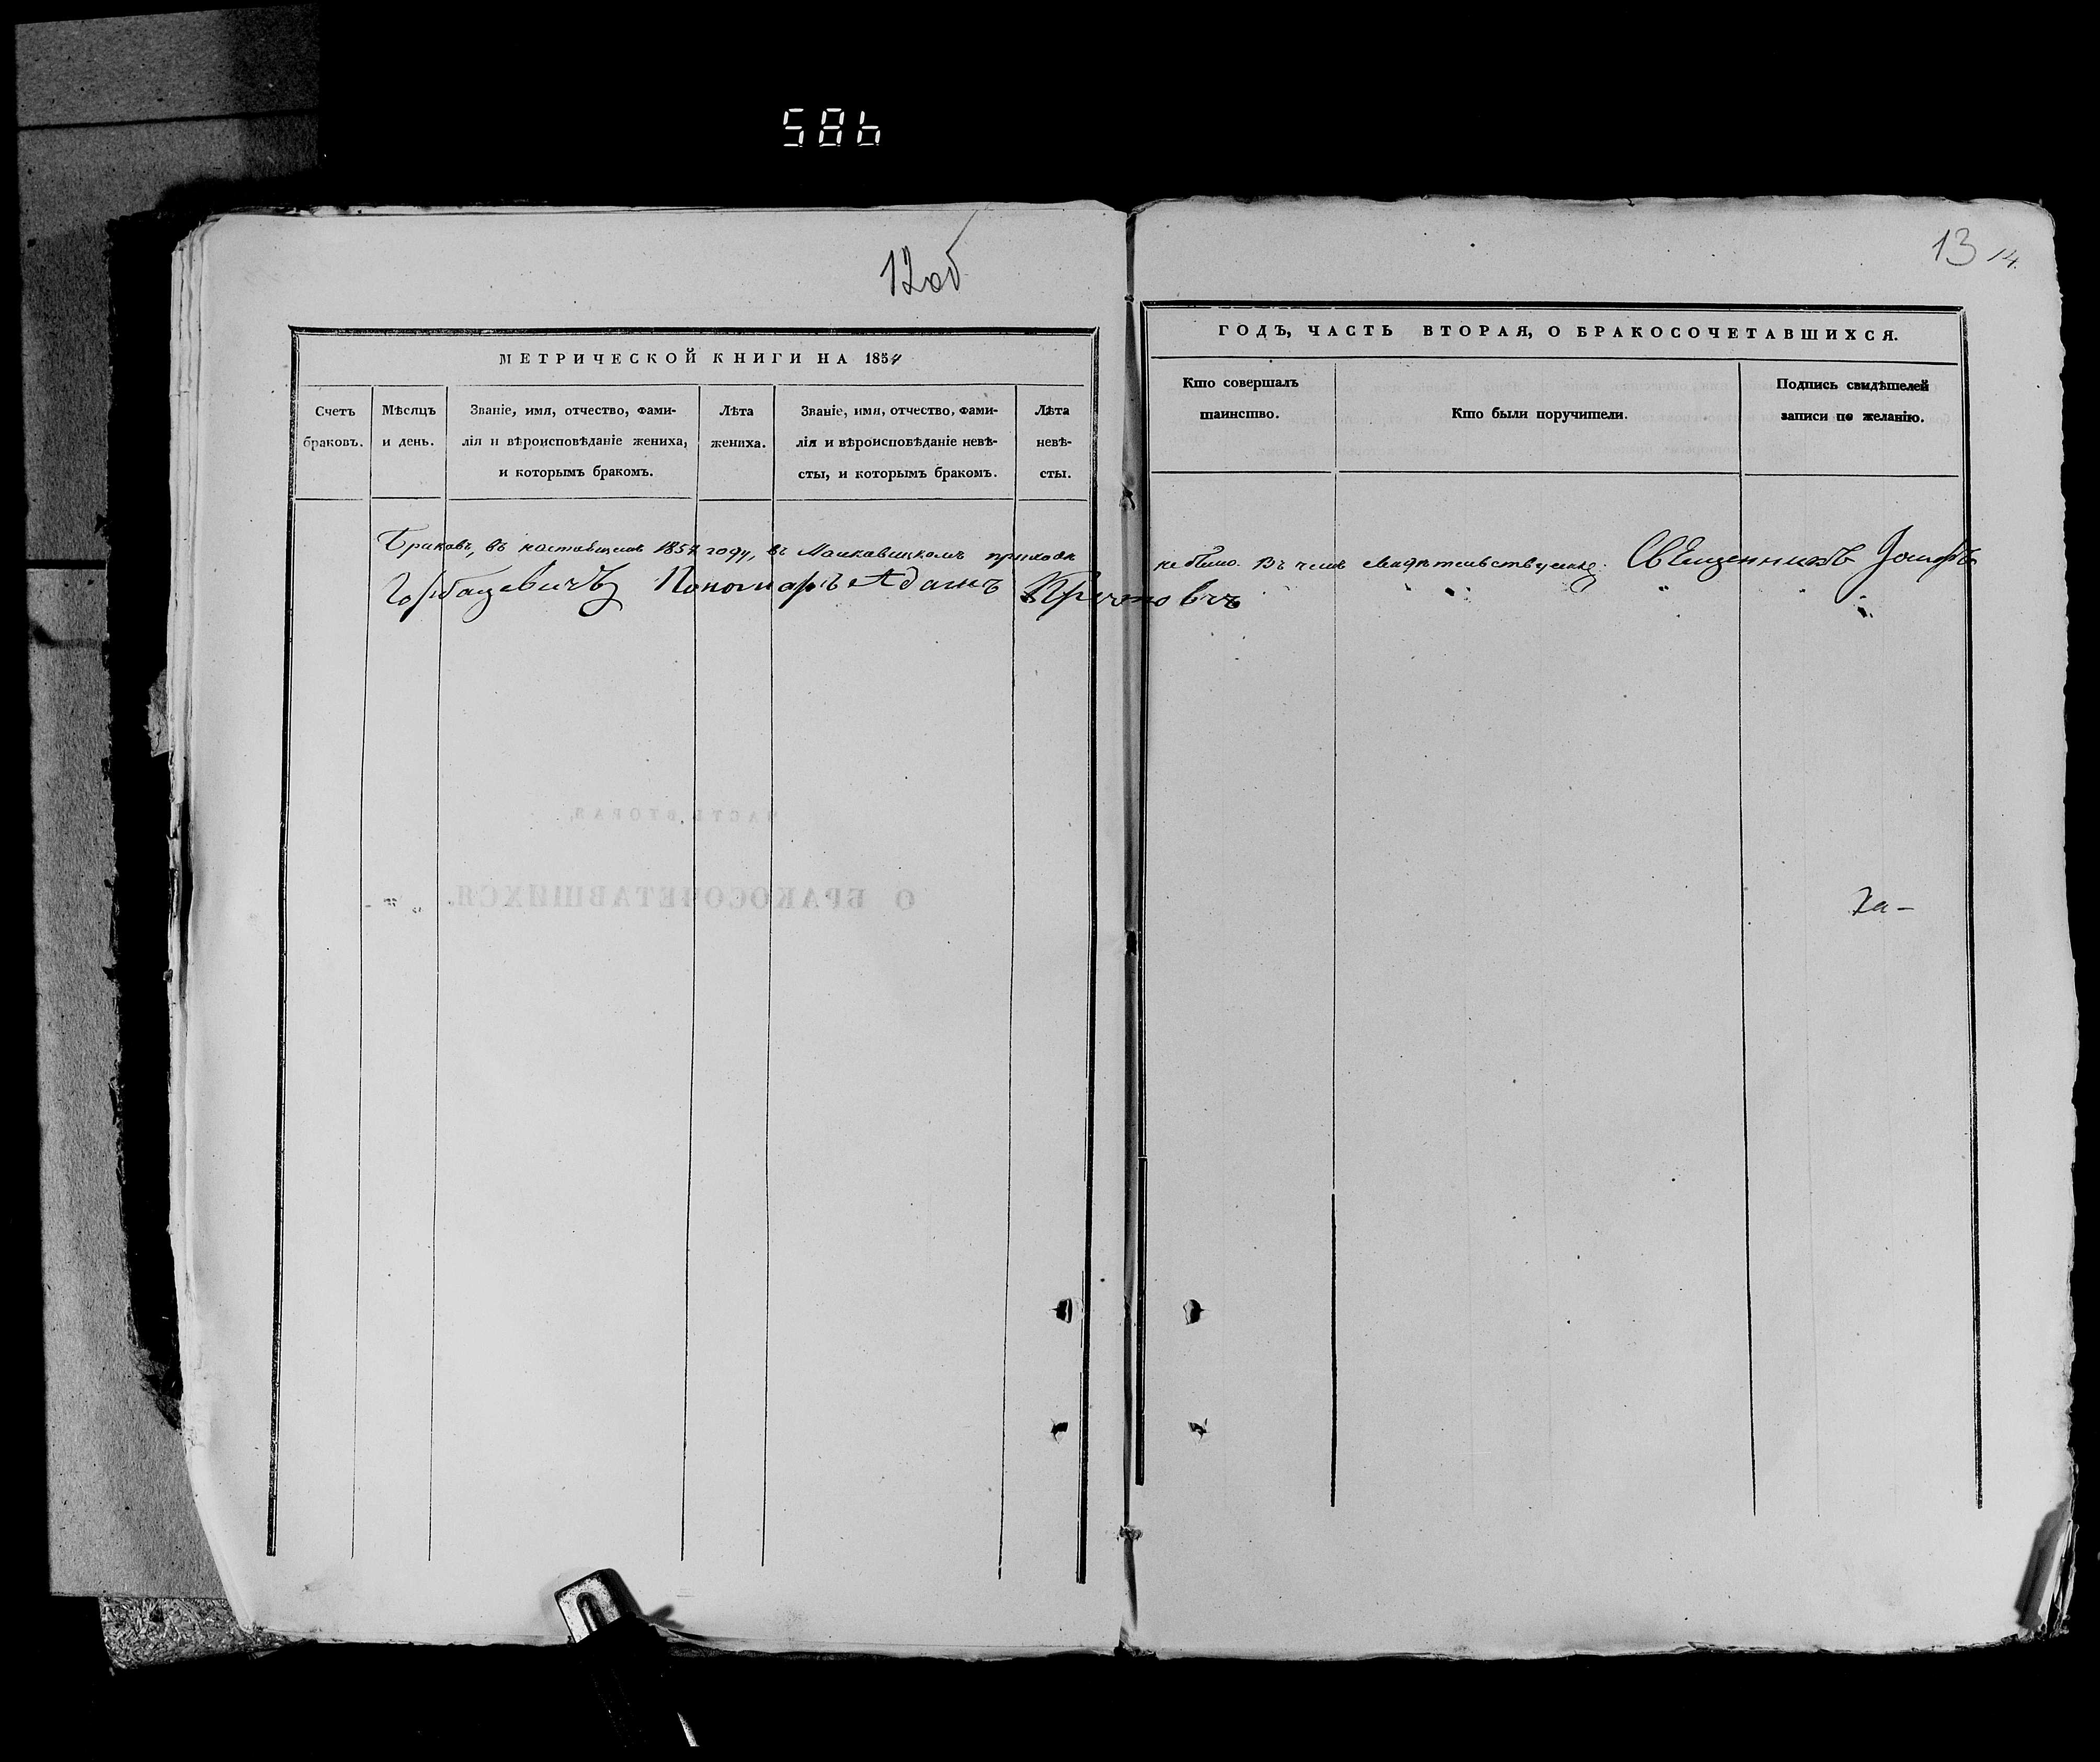 586
12об
МЕТРИЧЕСКОЙ КНИГИ НА 1854
Счетъ браковъ.
Мѣсяцъ и день.
Званіе, имя, отчество, фами-
лія и вѣроисповѣданіе жениха,
и которымъ бракомъ.
Лѣта жениха.
Званіе, имя, отчество, фами-
лія и вѣроисповѣданіе невѣ-
сты, и которымъ бракомъ.
Лѣта невѣ-
сты.
13 14.
ГОДЪ, ЧАСТЬ ВТОРАЯ, О БРАКОСОЧЕТАВШИХСЯ.
Кто совершалъ
таинство.
Кто были поручители.
Подпись свидѣтелей
записи по желанію.
Браковъ, въ настоящемъ 1854 году, въ приходѣ не было. Въ чемъ свидѣтельствуемъ: Священникъ Іосифъ
Горбацевичъ Пономарь Адамъ
О БРАКОСОЧЕТАВШИХСЯ.
ЧАСТЬ ВТОРАЯ,
Ха-